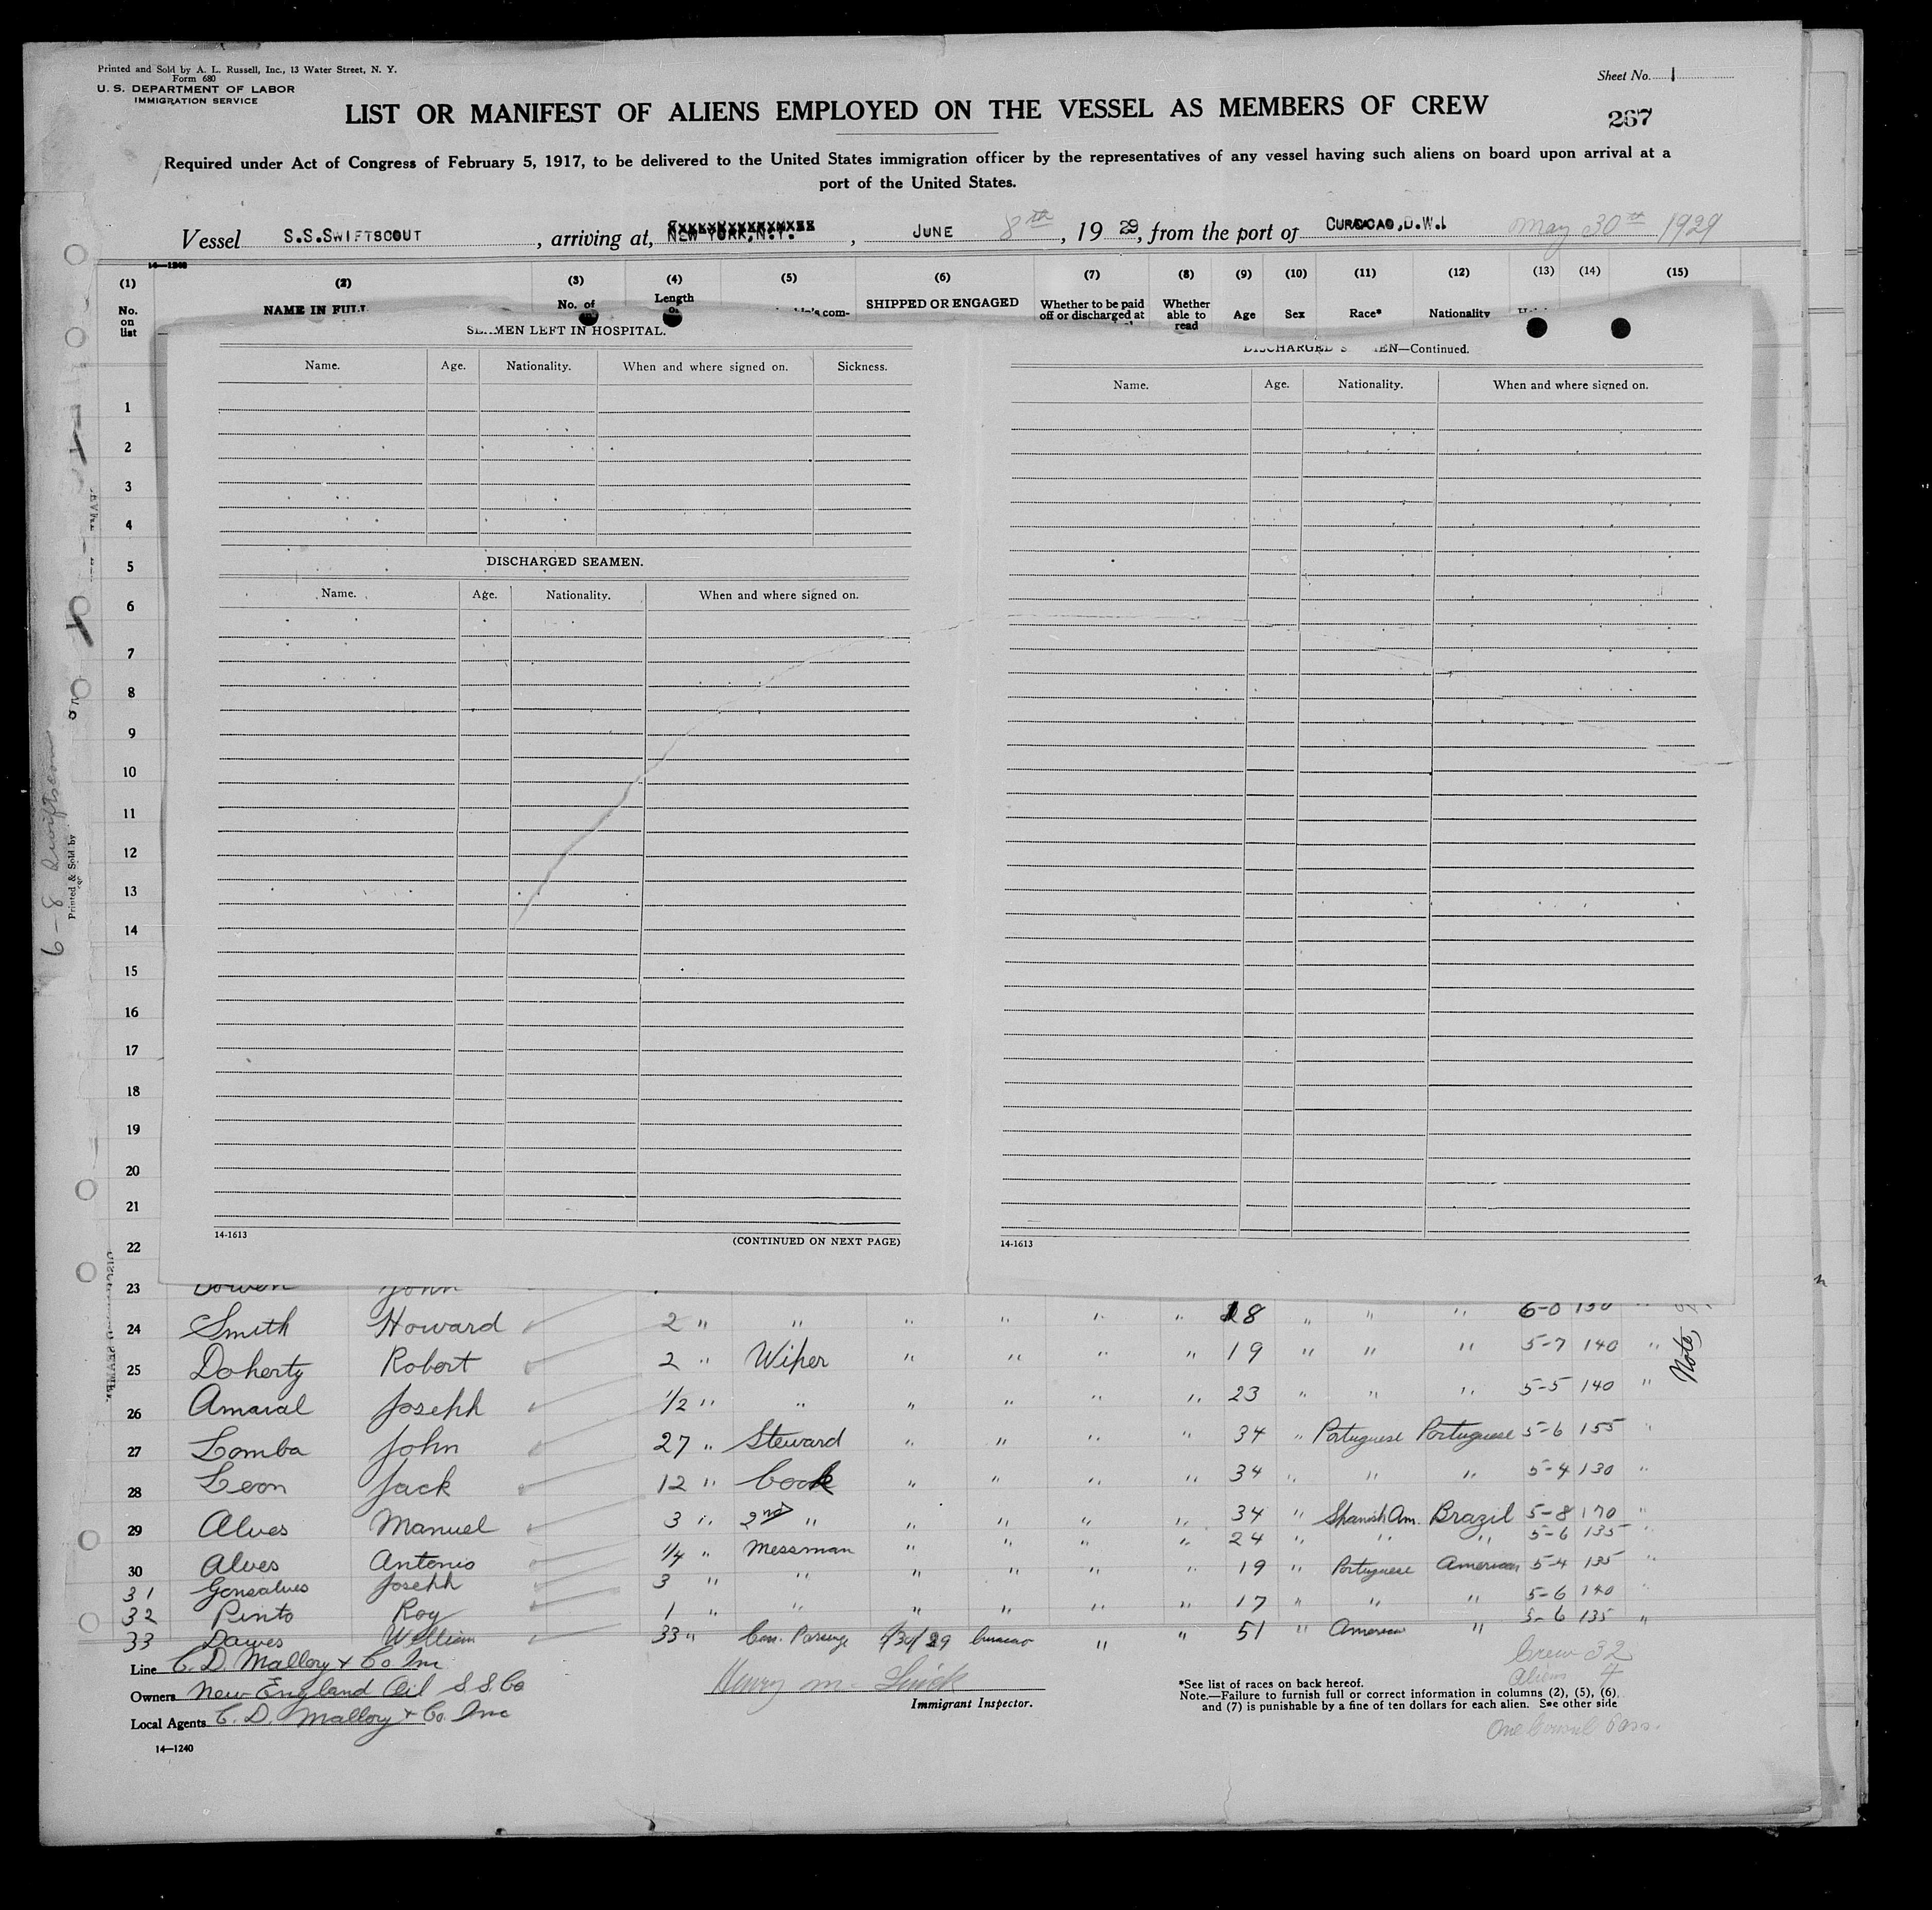 Printed and Sold by A. L. Russell, Inc., 13 Water Street, N. Y.
Form 680
U. S. DEPARTMENT OF LABOR
IMMIGRATION SERVICE
Sheet No. 1
LIST OR MANIFEST OF ALIENS EMPLOYED ON THE VESSEL AS MEMBERS OF CREW
267
Required under Act of Congress of February 5, 1917, to be delivered to the United States immigration officer by the representatives of any vessel having such aliens on board upon arrival at a
port of the United States.
Vessel S.S.SWIFTSCOUT, arriving at, NEW YORK,N.Y., JUNE 8th, 1929, from the port of CURACAO,D.W.I May 30th 1929
14—1240
(1) (2) (3) (4) (5) (6) (7) (8) (9) (10) (11) (12) (13) (14) (15)
No. on list NAME IN FULL No. of Length SHIPPED OR ENGAGED Whether to be paid off or discharged at Whether able to read Age Sex Race* Nationality
SEAMEN LEFT IN HOSPITAL.
Name. Age. Nationality. When and where signed on. Sickness.
DISCHARGED SEAMEN.
Name. Age. Nationality. When and where signed on.
14-1613
(CONTINUED ON NEXT PAGE)
DISCHARGED SEAMEN—Continued.
Name. Age. Nationality. When and where signed on.
14-1613
1
2
3
4
5
6
7
8
9
10
11
12
13
14
15
16
17
18
19
20
21
22
6-8 Swiftscout
Printed & Sold by
23 John
24 Smith Howard 2 " " " " " " 18 " " " 6-0 130 "
25 Doherty Robert 2 " Wiper " " " " 19 " " " 5-7 140 "
Note
26 Amaral Joseph 1/2 " " " " " " 23 " " " 5-5 140 "
27 Lomba John 27 " Steward " " " " 34 " Portuguese Portuguese 5-6 155 "
28 Leon Jack 12 " Cook " " " " 34 " " " 5-4 130 "
29 Alves Manuel 3 " 2nd " " " " " 34 " Spanish Am. Brazil 5-8 170 "
30 Alves Antonio 1/4 " Messman " " " " 24 " " " 5-6 135 "
31 Gonsalves Joseph 3 " " " " " " 19 " Portuguese American 5-4 135 "
32 Pinto Roy 1 " " " " " " 17 " " " 5-6 140 "
33 Dawes William 33 " 5/30/29 Curacao " " 51 " American " 5-6 135 "
Line C. D. Mallory & Co. Inc
Owners New England Oil S S Co
Local Agents C. D. Mallory & Co. Inc
14—1240
Henry M.
Immigrant Inspector.
Crew 32
Aliens 4
*See list of races on back hereof.
Note.—Failure to furnish full or correct information in columns (2), (5), (6),
and (7) is punishable by a fine of ten dollars for each alien. See other side
One Consul Pass.